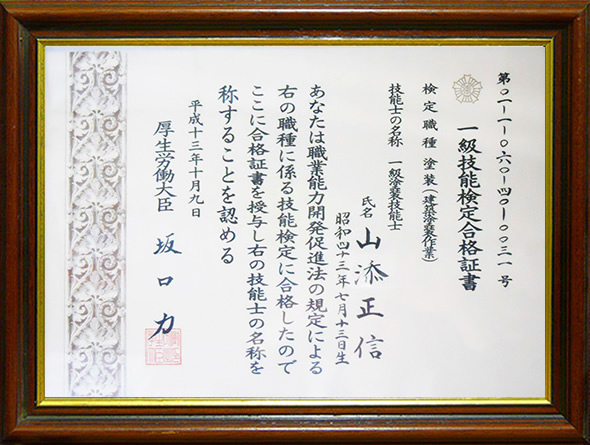 第〇一-一-〇六〇-四〇-〇〇三一号
一級技能検定合格証書
検定職種 塗装(建築塗装作業)
技能士の名称 一級塗装技能士
氏名 山添正信
昭和四十三年七月十三日生
あなたは職業能力開発促進法の規定による
右の職種に係る技能検定に合格したので
ここに合格証書を授与し右の技能士の名称を
称することを認める
平成十三年十月九日
厚生労働大臣 坂口力